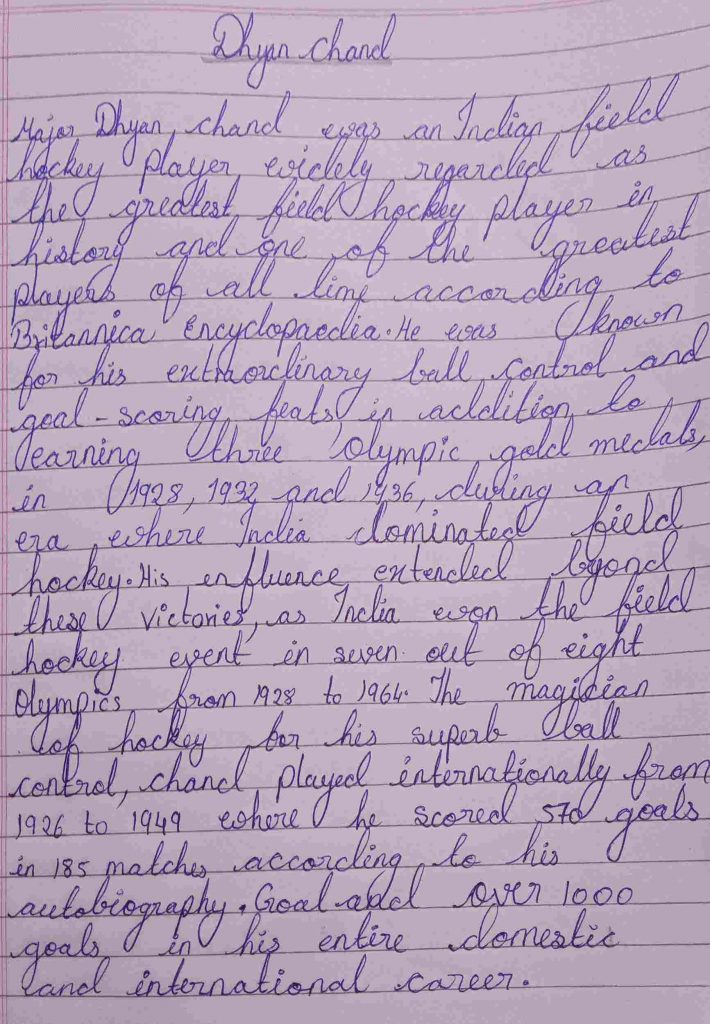 Dhyan chand
Major Dhyan chand was an Indian field
hockey player widely regarded as
the greatest field hockey player in
history and one of the greatest
players of all time according to
Britannica Encyclopaedia. He was known
for his extraordinary ball control and
goal-scoring feats, in addition to
earning three Olympic gold medals,
in 1928, 1932 and 1936, during an
era where India dominated field
hockey. His enfluence extended byond
these victories, as India won the field
hockey event in seven out of eight
Olympics from 1928 to 1964. The magician
of hockey for his superb ball
control, chand played internationally from
1926 to 1949 where he scored 570 goals
in 185 matches according to his
autobiography. Goal and over 1000
goals in his entire domestic
and international career.